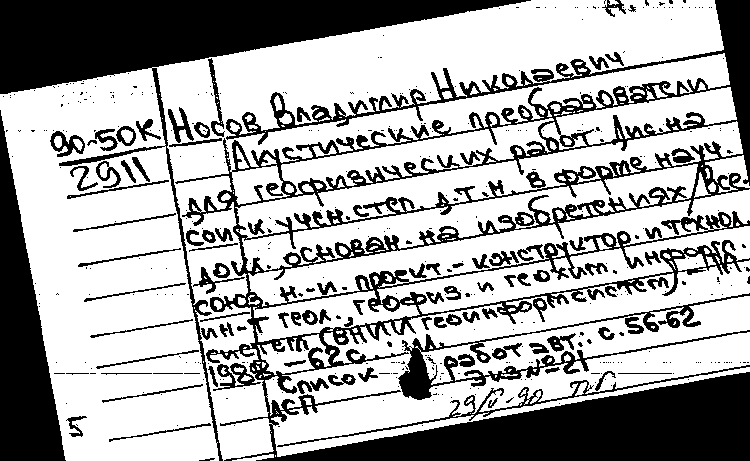 90-50К
2911
Носов, Владимир Николаевич
Акустические преобразователи
для геофизических работ: Дис. на
соиск. учен. степ. д.т.н. в форме науч.
докл., основан. на изобретениях / Все-
союз. н.-и. проект.-конструктор. и технол.
ин-т геол., геофиз. и геохим. информ.
систем (ВНИИгеоинформсистем). -
1988. - 62 с.: ил.
Список работ авт.: с. 56-62
ДСП Экз № 21
5